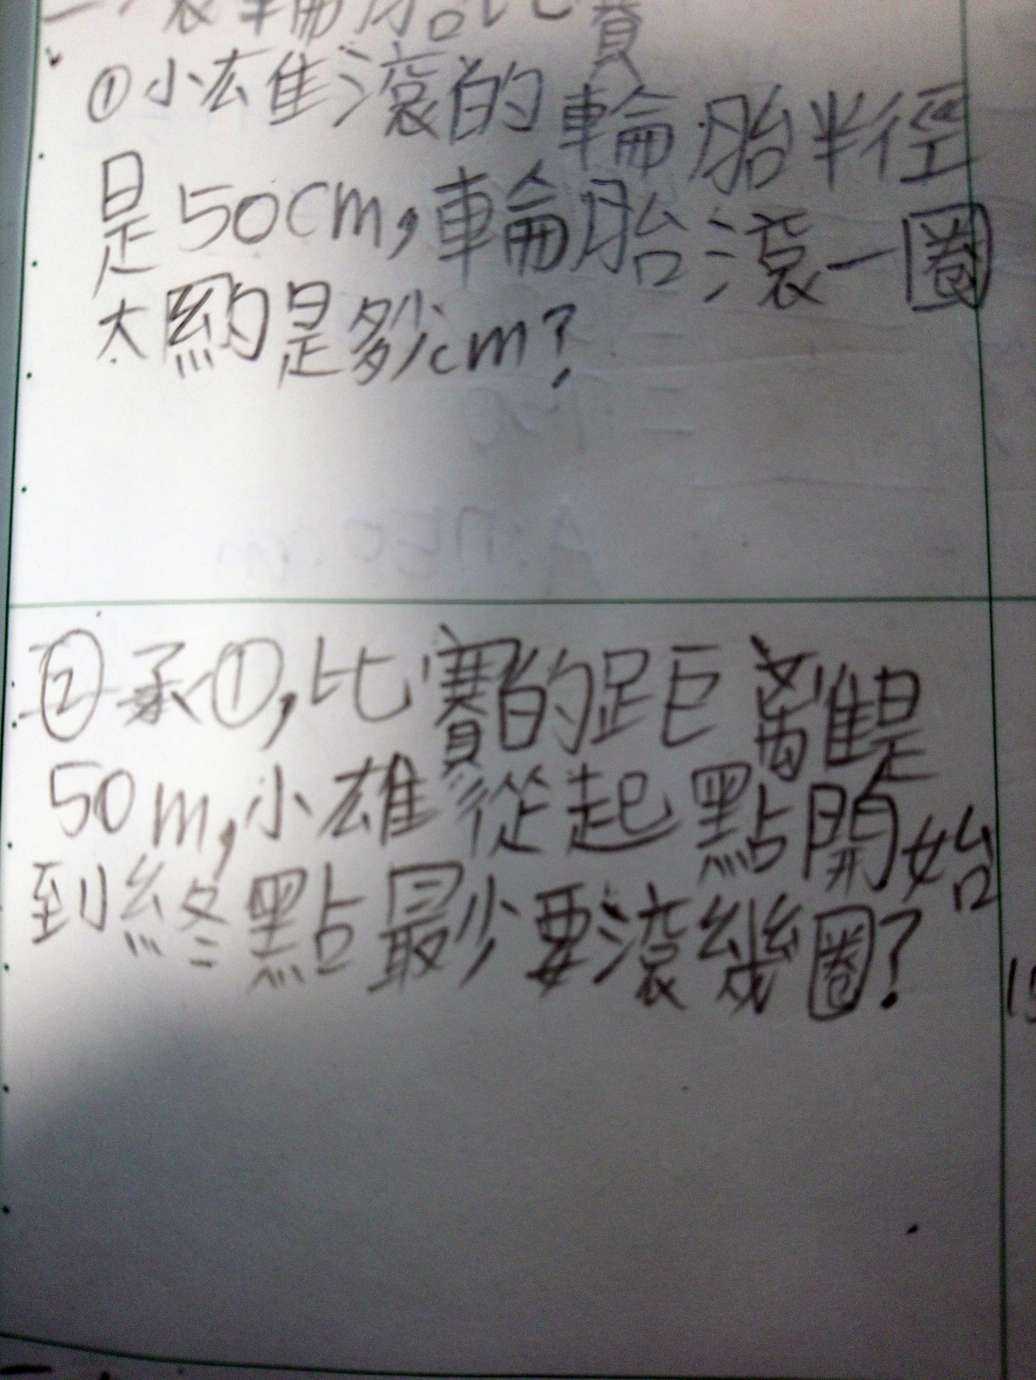 一、滾輪胎比賽
①小雄滾的輪胎半徑
是50cm,輪胎滾一圈
大約是多少cm?
②承①,比賽的距離是
50m,小雄從起點開始
到終點最少要滾幾圈?